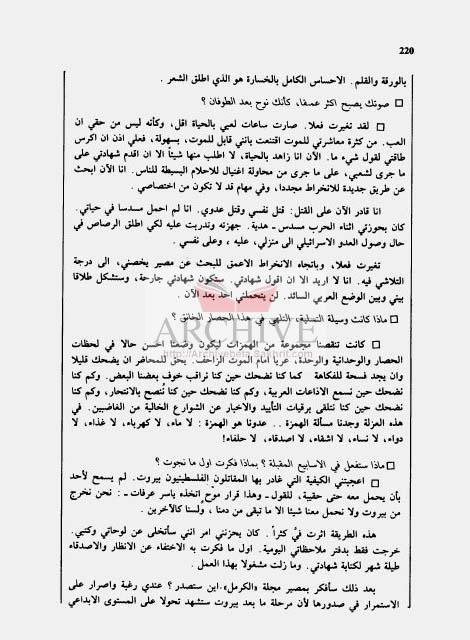 220
بالورقة والقلم. الاحساس الكامل بالخسارة هو الذي اطلق الشعر.
□ صوتك يصبح اكثر عمقا، كأنك نوح بعد الطوفان ؟
□ لقد تغيرت فعلا. صارت ساعات لعبي بالحياة اقل، وكأنه ليس من حقي ان
العب. من كثرة معاشرتي للموت اقتنعت بأنني قابل للموت، بسهولة، فعلي اذن ان اكرس
طاقتي لقول شيء ما. الآن انا زاهد بالحياة، لا اطلب منها شيئاً الا ان اقدم شهادتي على
ما جرى لشعبي، على ما جرى من محاولة اغتيال للاحلام البسيطة للناس. انا الآن ابحث
عن طريق جديدة للانخراط مجددا، وفي مهام قد لا تكون من اختصاصي.
انا قادر الآن على القتل: قتل نفسي وقتل عدوي. انا لم احمل مسدسا في حياتي.
كان بحوزتي اثناء الحرب مسدس ـ هدية. جهزته وتدربت عليه لكي اطلق الرصاص في
حال وصول العدو الاسرائيلي الى منزلي، عليه، وعلى نفسي.
تغيرت فعلا، وباتجاه الانخراط الاعمق للبحث عن مصير يخصني، الى درجة
التلاشي فيه. انا لا اريد الا ان اقول شهادتي. ستكون شهادتي جارحة، وستشكل طلاقا
بيني وبين الوضع العربي السائد. لن يتحملني احد بعد الآن.
□ ماذا كانت وسيلة التسلية، التلهي في هذا الحصار الخانق ؟
ARCHIVE
□ كانت تنقصنا مجموعة من الهمزات ليكون وضعنا احسن حالا في لحظات
الحصار والوحدانية والوحدة، عرايا امام الموت الزاحف. يحق للمحاضر ان يضحك قليلا
وان يجد فسحة للفكاهة كما كنا نضحك حين كنا نراقب خوف بعضنا البعض. وكم كنا
نضحك حين نسمع الاذاعات العربية، وكم كنا نضحك حين كنا نُنصح بالانتحار، وكم كنا
نضحك حين كنا نتلقى برقيات التأييد والاخبار عن الشوارع الخالية من الغاضبين. في
هذه العزلة وجدنا مسألة الهمزة .. عدونا هو الهمزة : لا ماء، لا كهرباء، لا غذاء، لا
دواء، لا نساء، لا اشقاء، لا اصدقاء، لا حلفاء!
□ ماذا ستفعل في الاسابيع المقبلة ؟ بماذا فكرت اول ما نجوت ؟
□ اعجبتني الكيفية التي غادر بها المقاتلون الفلسطينيون بيروت. لم يسمح لأحد
بأن يحمل معه حتى حقيبة، للقول ـ وهذا قرار موحٍ اتخذه ياسر عرفات ـ : نحن نخرج
من بيروت ولا نحمل معنا شيئا الا ما تبقى من دمنا، ولسنا كالآخرين.
هذه الطريقة اثرت فيَّ كثراً. كان يحزنني امر انني سأتخلى عن لوحاتي وكتبي.
خرجت فقط بدفتر ملاحظاتي اليومية. اول ما فكرت به الاختفاء عن الانظار والاصدقاء
طيلة شهر لكتابة شهادتي. وما زلت مشغولا بهذا العمل.
بعد ذلك سأفكر بمصير مجلة «الكرمل». اين ستصدر ؟ عندي رغبة واصرار على
الاستمرار في صدورها لأن مرحلة ما بعد بيروت ستشهد تحولا على المستوى الابداعي